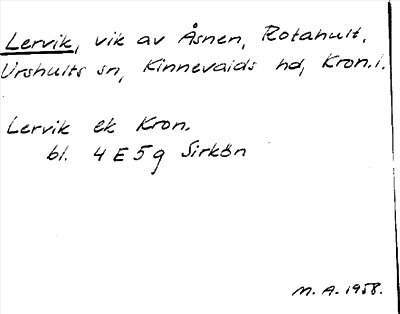 Lervik, vik av Åsnen, Rotahult,
Urshults sn, Kinnevalds hd, Kron.l.
Lervik ek Kron.
bl. 4 E 5 g Sirkön
M. A. 1958.